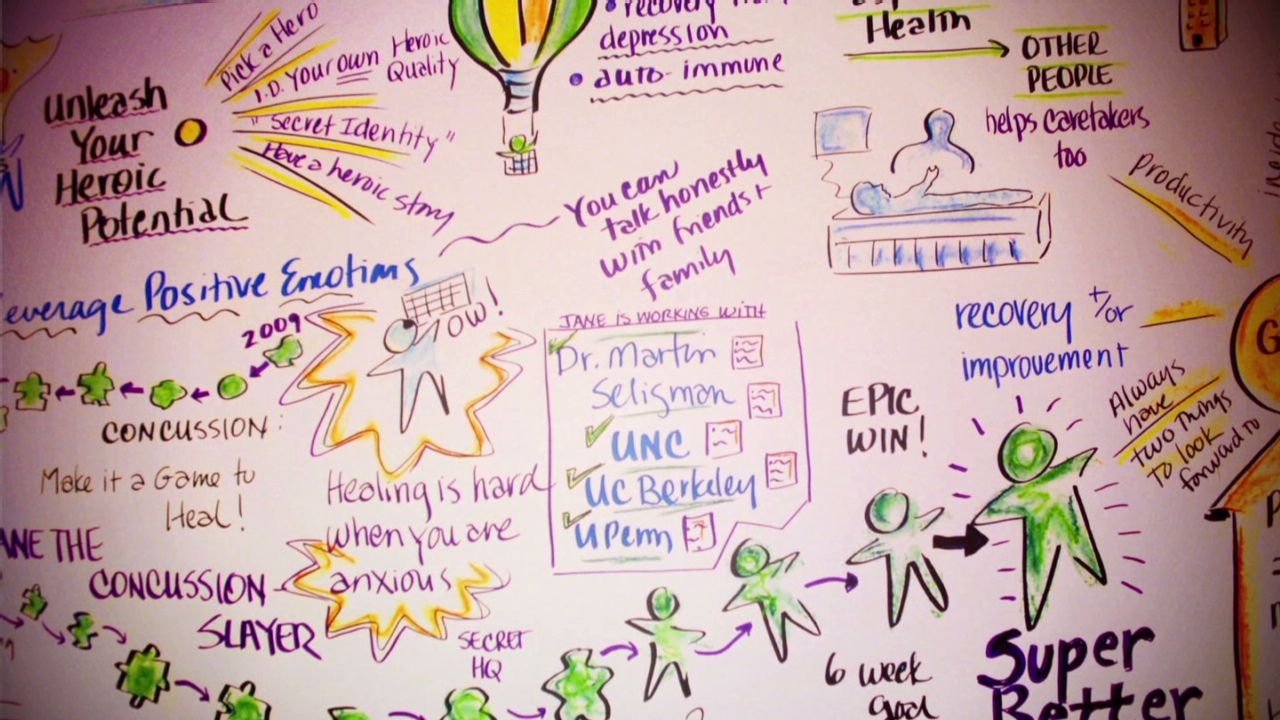 Unleash
Your
Heroic
Potential
Pick a Hero
I.D. Your own Heroic
Quality
"Secret Identity"
Have a heroic story
depression
auto-immune
Health
OTHER
PEOPLE
helps caretakers
too
Productivity
You can
talk honestly
with friends +
family
everage Positive Emotions
2009
OW!
CONCUSSION:
Make it a Game to
Heal!
ANE THE
CONCUSSION
SLAYER
Healing is hard
when you are
anxious
SECRET
HQ
JANE IS WORKING WITH
Dr. Martin
Seligman
UNC
UC Berkeley
UPenn
recovery +/or
improvement
Always
have
two things
to look
forward to
EPIC
WIN!
6 week
goal
Super
Better
G